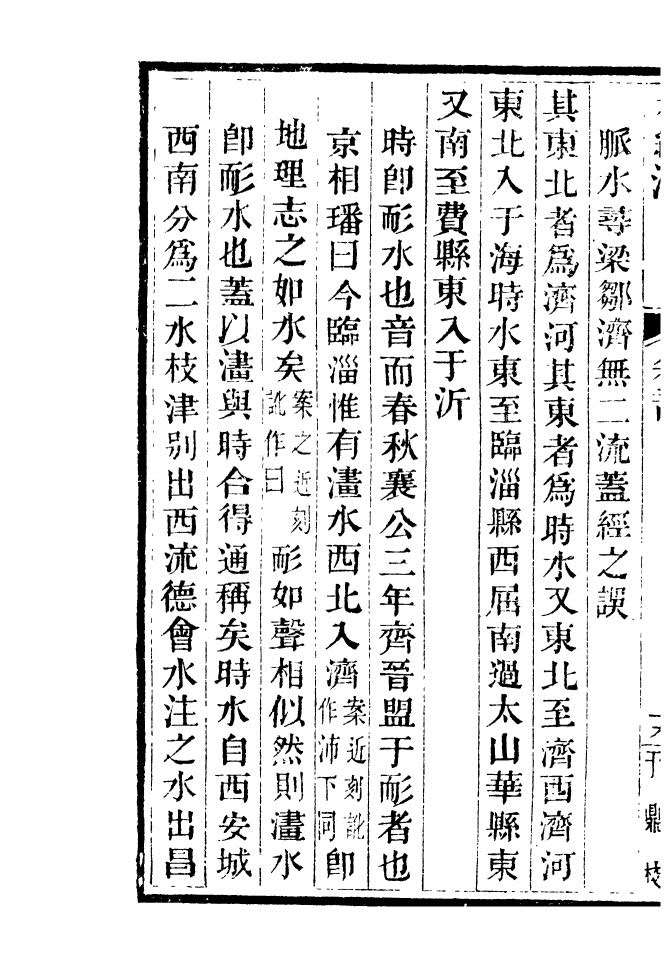 脈水尋梁鄒濟無二流蓋經之誤
其東北者爲濟河其東者爲時水又東北至濟西濟河
東北入于海時水東至臨淄縣西屈南過太山華縣東
又南至費縣東入于沂
時卽耏水也音而春秋襄公三年齊晉盟于耏者也
京相璠曰今臨淄惟有澅水西北入濟案近刻訛作沛下同卽
地理志之如水矣案之近刻訛作曰耏如聲相似然則澅水
卽耏水也蓋以澅與時合得通稱矣時水自西安城
西南分爲二水枝津别出西流德會水注之水出昌